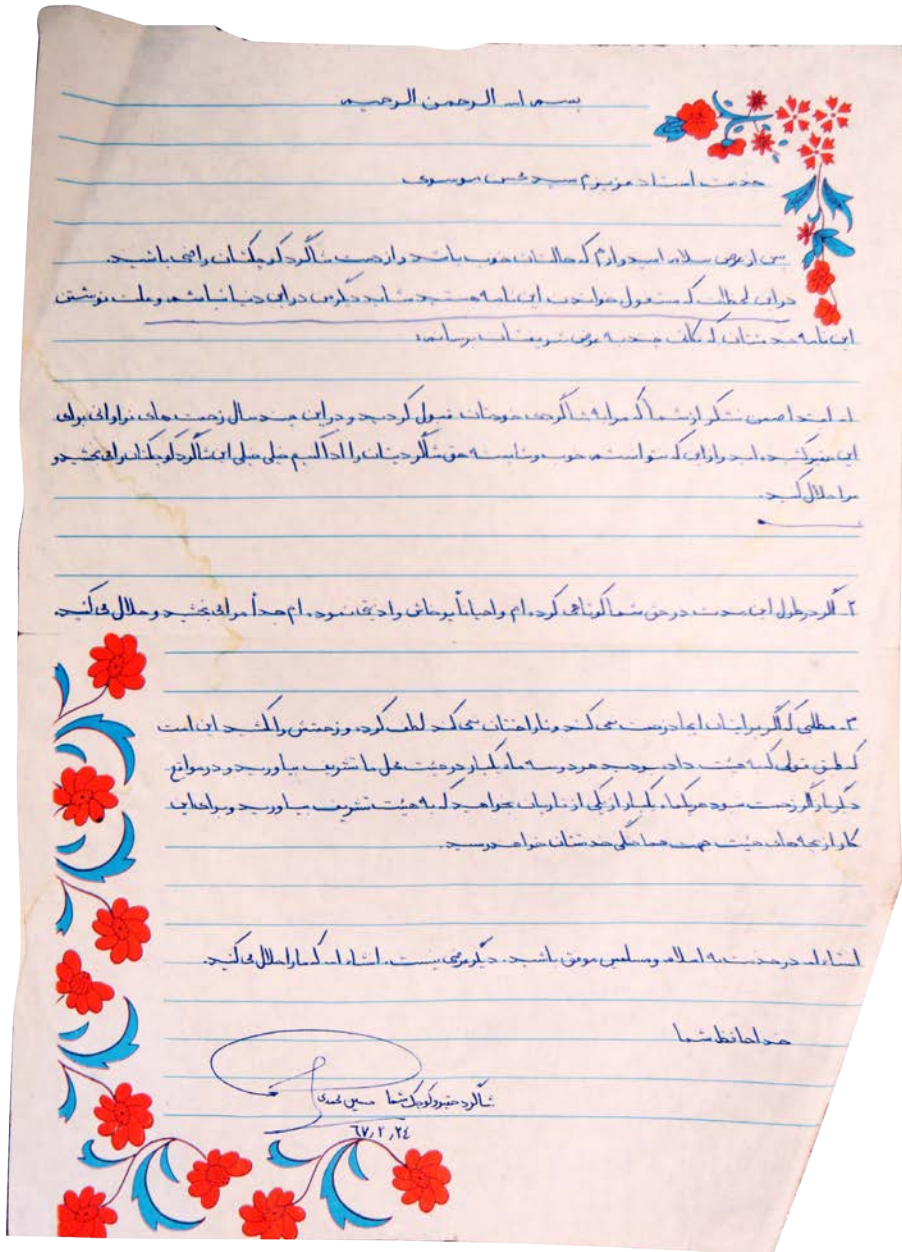 بسم الله الرحمن الرحیم
خدمت استاد عزیزم سید محسن موسوی
پس از عرض سلام امیدوارم که حالتان خوب باشد و از دست شاگرد کوچکتان راضی باشید.
در این لحظات که مشغول خواندن این نامه هستید شاید دیگر من در این دنیا نباشم و علت نوشتن
این نامه خدمتتان که نکات چندی به عرض شریفتان برسانم:
۱- ابتدا ضمن تشکر از شما که مرا به شاگردی خودتان قبول کردید و در این چند سال زحمت های فراوانی برای
این حقیر کشیده امیدوارم از این که نتوانستم خوب و شایسته حق شاگردیتان را ادا کنیم خیلی خیلی این شاگرد کوچکتان را می بخشید و
مرا حلال کنید.
۲- اگر در طول این مدت در حق شما کوتاهی کرده ام و احیاناً پرخاش و اذیتی نموده ام جداً مرا می بخشید و حلال می کنید.
۳- مطلبی که اگر برایتان ایجاد زحمت نمی کند و ناراحتتان نمی کند لطف کرده و زحمتش را بکشید این است
که طبق قولی که به هیئت داده بودید هر دو سه ماه یکبار در هیئت محل ما تشریف بیاورید و در مواقع
دیگر باز اگر زحمت نبود هر یکماه یکبار از یکی از قاریان بخواهید که به هیئت تشریف بیاورید و برای این
کار از بچه های هیئت جهت هماهنگی خدمتتان خواهند رسید.
انشاءالله در خدمت به اسلام و مسلمین موفق باشید. دیگر عرضی نیست. انشاءالله که ما را حلال می کنید.
خداحافظ شما
شاگرد حقیر و کوچک شما حسین محمدی
۶۷،۲،۲۴